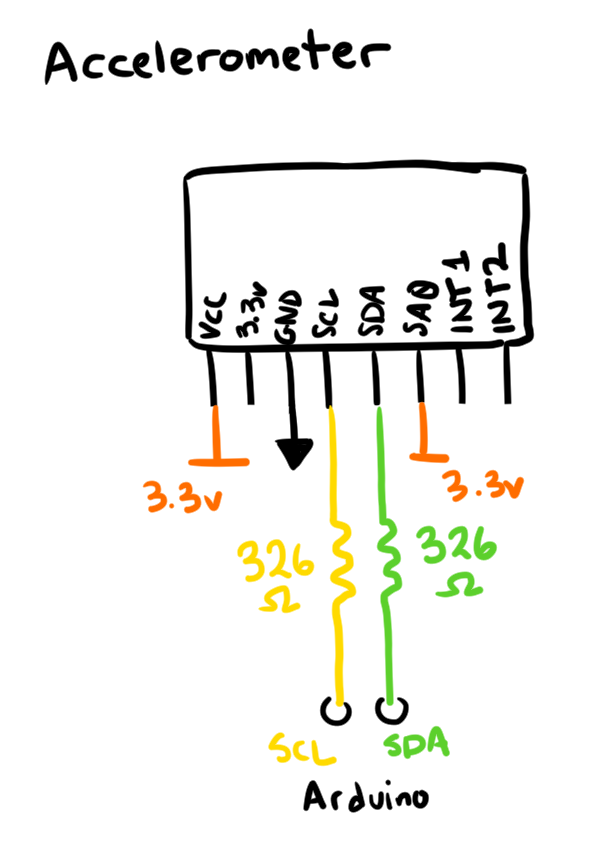 Accelerometer
VCC
3.3v
GND
SCL
SDA
SA0
INT1
INT2
3.3v
3.3v
326
Ω
326
Ω
SCL
SDA
Arduino